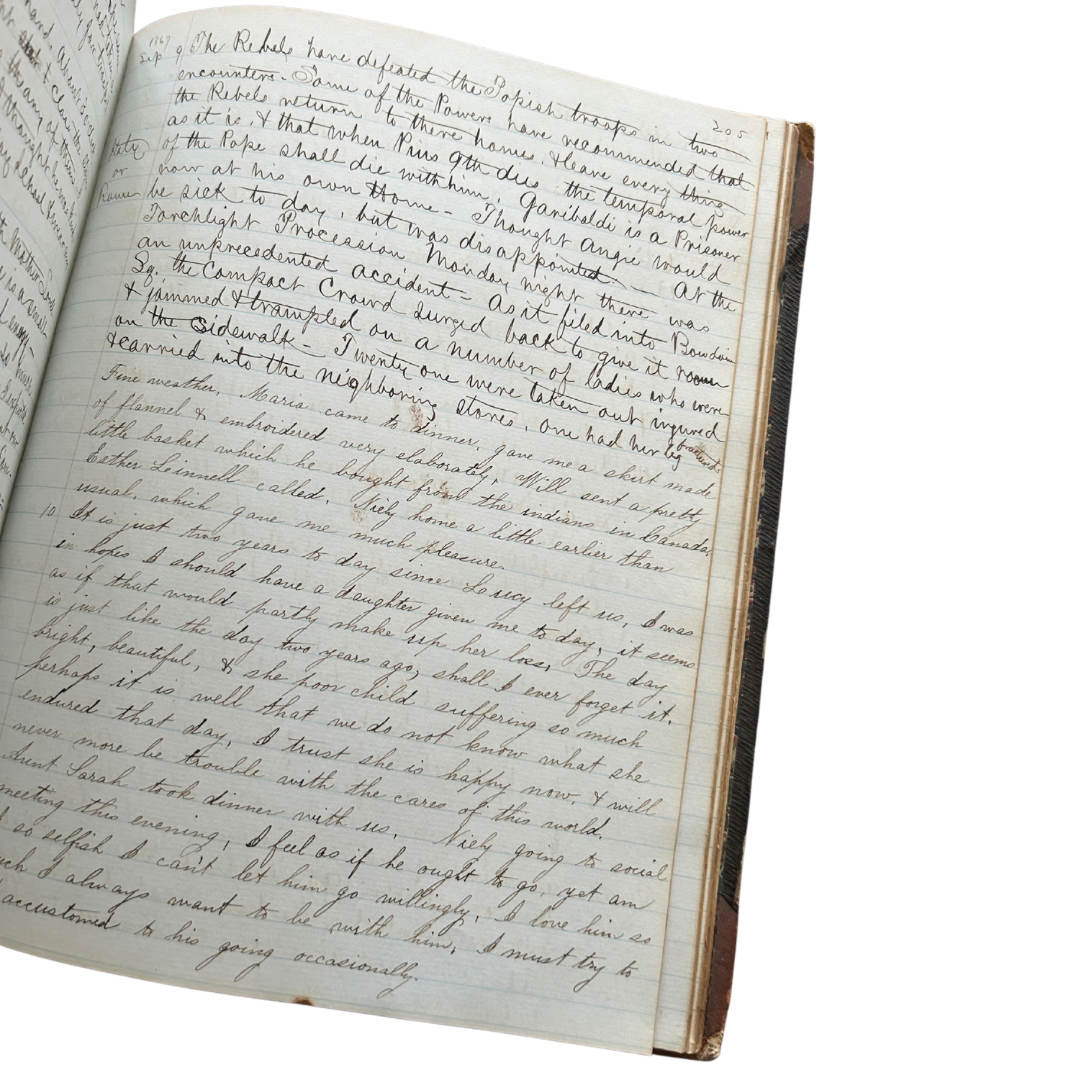 205
1867
Sep 9 The Rebels have defeated the Popish troops in two
encounters - Some of the Powers have recommended that
the Rebels return to there homes, & leave every thing
as it is, & that when Pius 9th dies the temporal power
of the Pope shall die with him. Garibaldi is a Prisoner
now at his own Home - Thought Angie would
be sick to day, but was disappointed. - At the
Torchlight Procession Monday night there was
an unprecedented accident - As it filed into Bowdoin
Sq. the Compact Crowd surged back to give it room
& jammed & trampled on a number of ladies who were
on the sidewalk - Twenty one were taken out injured
& carried into the neighboring stores, one had her leg
Fine weather, Maria came to dinner, gave me a skirt made
of flannel & embroidered very elaborately, Will sent a pretty
little basket which he bought from the indians in Canada,
Esther Leinnell called. Niely home a little earlier than
usual, which gave me much pleasure.
10. It is just two years to day since Lucy left us, I was
in hopes I should have a daughter given me to day, it seems
as if that would partly make up her loss, The day
is just like the day two years ago, shall I ever forget it,
bright, beautiful, & she poor child suffering so much
perhaps it is well that we do not know what she
endured that day, I trust she is happy now, & will
never more be trouble with the cares of this world.
Aunt Sarah took dinner with us, Niely going to social
meeting this evening, I feel as if he ought to go, yet am
so selfish I can't let him go willingly, I love him so
I always want to be with him, I must try to
accustomed to his going occasionally.